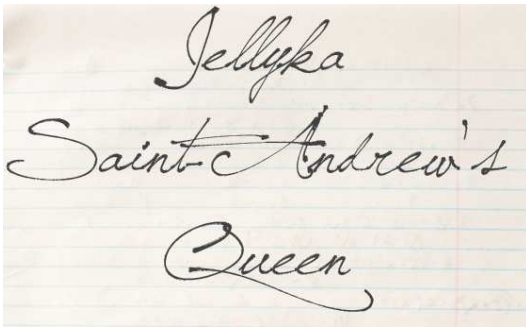 Jellyka
Saint-Andrew's
Queen